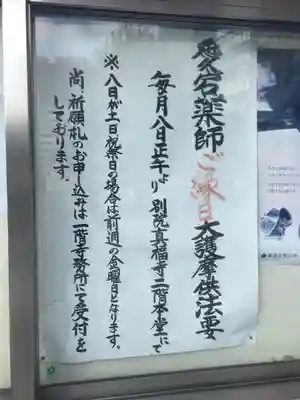 愛宕薬師ご縁日大護摩供法要
毎月八日正午より別院真福寺二階本堂にて
※八日が土日祝祭日の場合は前週の金曜日となります。
尚、祈願札のお申込みは一階寺務所にて受付を
しております。